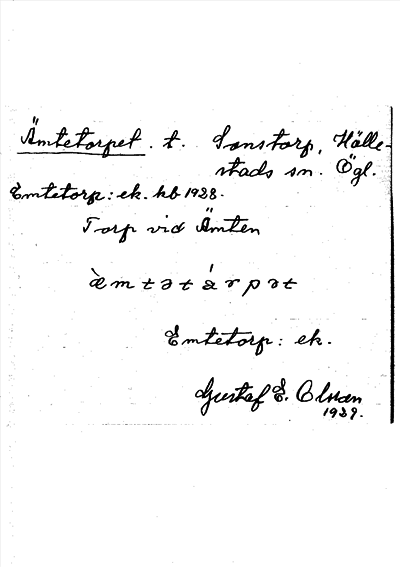 Ämtetorpet. t. Sonstorp, Hälle-
stads sn. Ögl.
Emtetorp: ek. kb 1928.
Torp vid Ämten
æ̀mtətárpət
Emtetorp: ek.
Gustaf E. Olsson
1929.